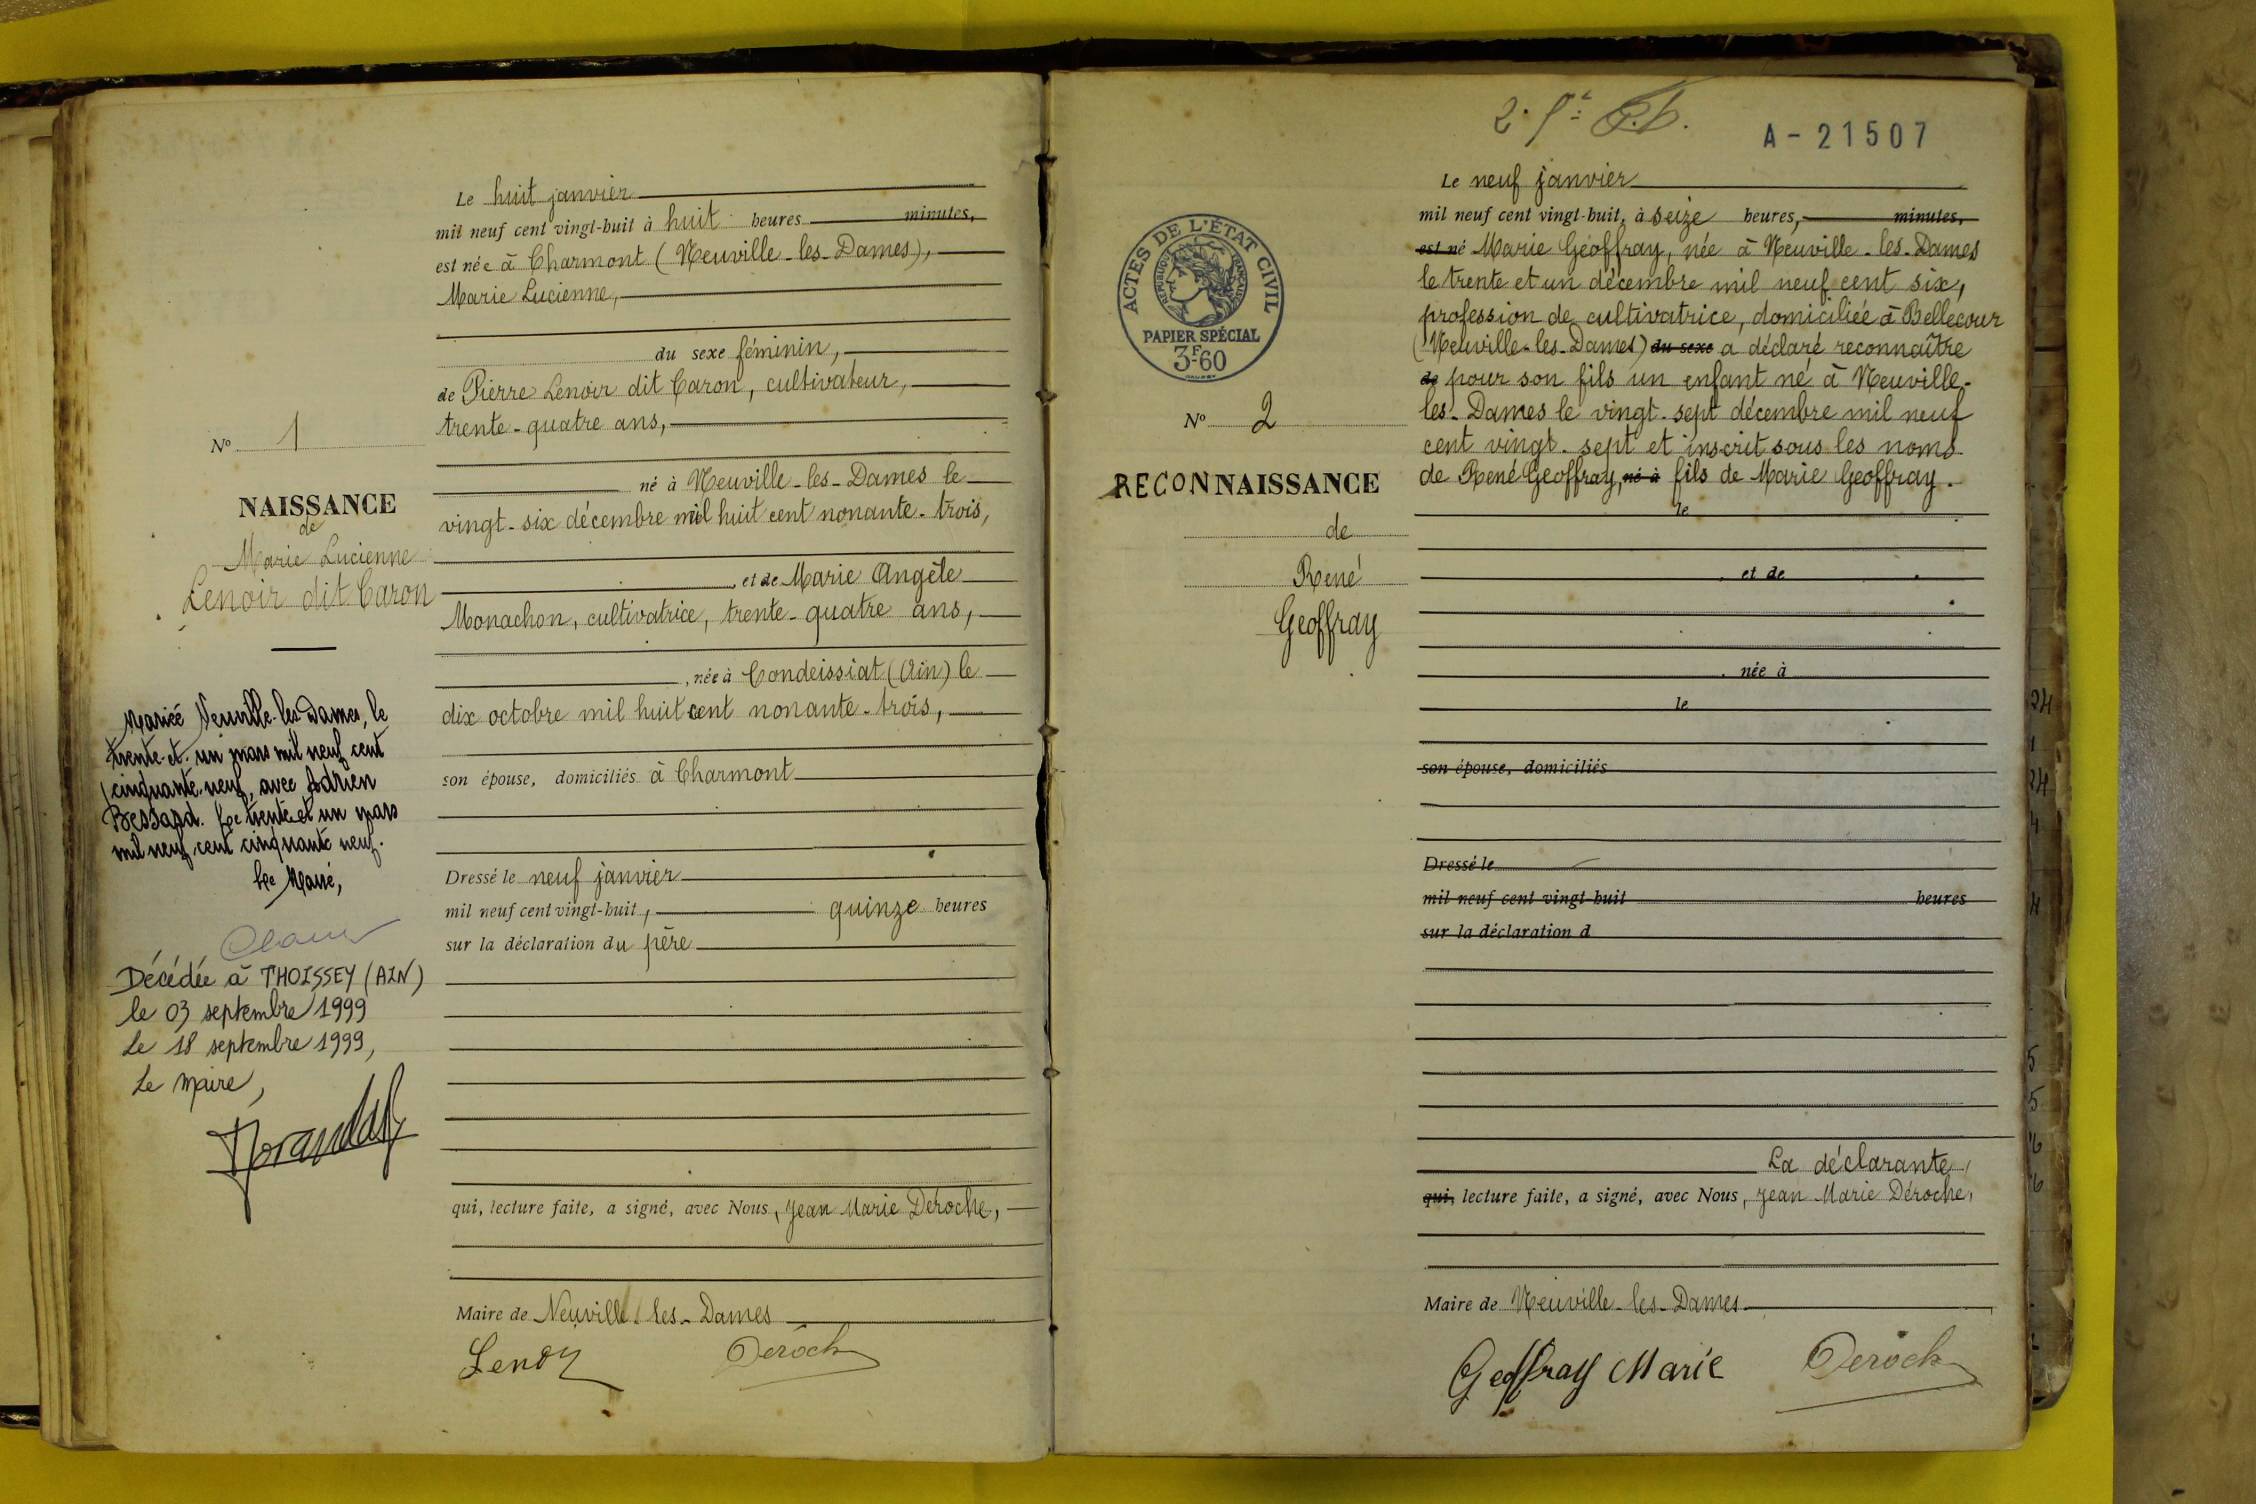 N° 1
NAISSANCE
de
Marie Lucienne
Lenoir dit Caron
Mariée Neuville-les-Dames, le
trente-et-un mars mil neuf cent
cinquante-neuf, avec Adrien
Bessard. Le trente et un mars
mil neuf cent cinquante neuf.
Le Maire,
Décédée à THOISSEY (AIN)
le 03 septembre 1999
Le 18 septembre 1999,
Le Maire,
Le huit janvier
mil neuf cent vingt-huit à huit heures minutes,
est née à Charmont (Neuville-les-Dames),
Marie Lucienne,
du sexe féminin,
de Pierre Lenoir dit Caron, cultivateur,
trente-quatre ans,
né à Neuville-les-Dames le
vingt-six décembre mil huit cent nonante-trois,
et de Marie Angèle
Monachon, cultivatrice, trente-quatre ans,
, née à Condeissiat (Ain) le
dix octobre mil huit cent nonante-trois,
son épouse, domiciliés à Charmont
Dressé le neuf janvier
mil neuf cent vingt-huit, quinze heures
sur la déclaration du père
qui, lecture faite, a signé, avec Nous, Jean Marie Déroche,
Maire de Neuville-les-Dames
Lenoir Déroche
A-21507
ACTES DE L'ÉTAT CIVIL
RÉPUBLIQUE FRANÇAISE
PAPIER SPÉCIAL
3F-60
N° 2
RECONNAISSANCE
de
René
Geoffray
Le neuf janvier
mil neuf cent vingt-huit, à seize heures, minutes,
est né Marie Geoffray, née à Neuville-les-Dames
le trente et un décembre mil neuf cent six,
profession de cultivatrice, domiciliée à Bellecour
(Neuville-les-Dames) du sexe a déclaré reconnaître
de pour son fils un enfant né à Neuville-
les-Dames le vingt-sept décembre mil neuf
cent vingt-sept et inscrit sous les noms
de René Geoffray, né à fils de Marie Geoffray.
le
, et de
, née à
le
son épouse, domiciliés
Dressé le
mil neuf cent vingt-huit heures
sur la déclaration d
La déclarante,
qui, lecture faite, a signé, avec Nous, Jean Marie Déroche,
Maire de Neuville-les-Dames
Geoffray Marie Déroche